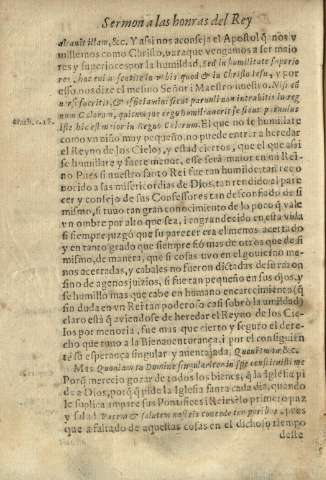 Sermon a las honras del Rey
alcante illam, &c. Y assi nos aconseja el Apostol q̃ nos y
millemos como Christo, para que vengamos a ser maio
res y superiores por la humildad, sed in humilitate superio
res, hoc enim sentite in vobis quod & in Christo Iesu, y por
esso nos dize el mesmo Señor i Maestro nuestro. Nisi
efficiamini sicut paruuli non intrabitis in reg
num Cælorum, quicunque ergo humiliauerit se sicut paruulus
iste hic est maior in Regno Cælorum. El que no se humillare
como vn niño muy pequeño, no puede entrar a heredar
el Reyno de los Cielos, y està cierto, que el que assi
se humillare y fuere menor, esse serà maior en mi Rei-
no Pues si nuestro santo Rei fue tan humilde, tan reco
nocido a las misericordias de Dios, tan rendido al pare
cer y consejo de sus Confessores tan desconfiado de si
mismo, si tuuo tan gran conocimiento de lo poco q̃ vale
vn ombre por alto que sea, i engrandecido en esta vida
si siempre juzgò que su parecer era el menos acertado
y en tanto grado que siempre fiò mas de otros que de si
mismo, de manera, que si cosas uvo en el gouierno me-
nos acertadas, y cabales no fueron dictadas de su razon
sino de agenos juizios, si fue tan pequeño en sus ojos, y
se humillò mas que cabe en humano encarecimiento (q̃
sin duda en vn Rei tan poderoso casi sobrò la umildad)
claro està q̃ aviendose de heredar el Reyno de los Cie-
los por menoria, fue mas que cierto y seguro el dere-
cho que tuuo a la Bienaventurança, i por el consiguien
te su esperança singular y auentajada. Quoniam tu &c.
Mas Quoniam tu Domine singulariter in spe constituisti me
Porq̃ merecio gozar de todos los bienes, q̃ la Iglesia pi
de a Dios, porq̃ q̃ pide la Iglesia santa cada dia, quando
le suplica ampare sus Pontifices i Reies? lo primero paz
y salud. Pacem & salutem nostris concede temporibus, pues
que a faltado de aquestas cosas en el dichoso tiempo
deste